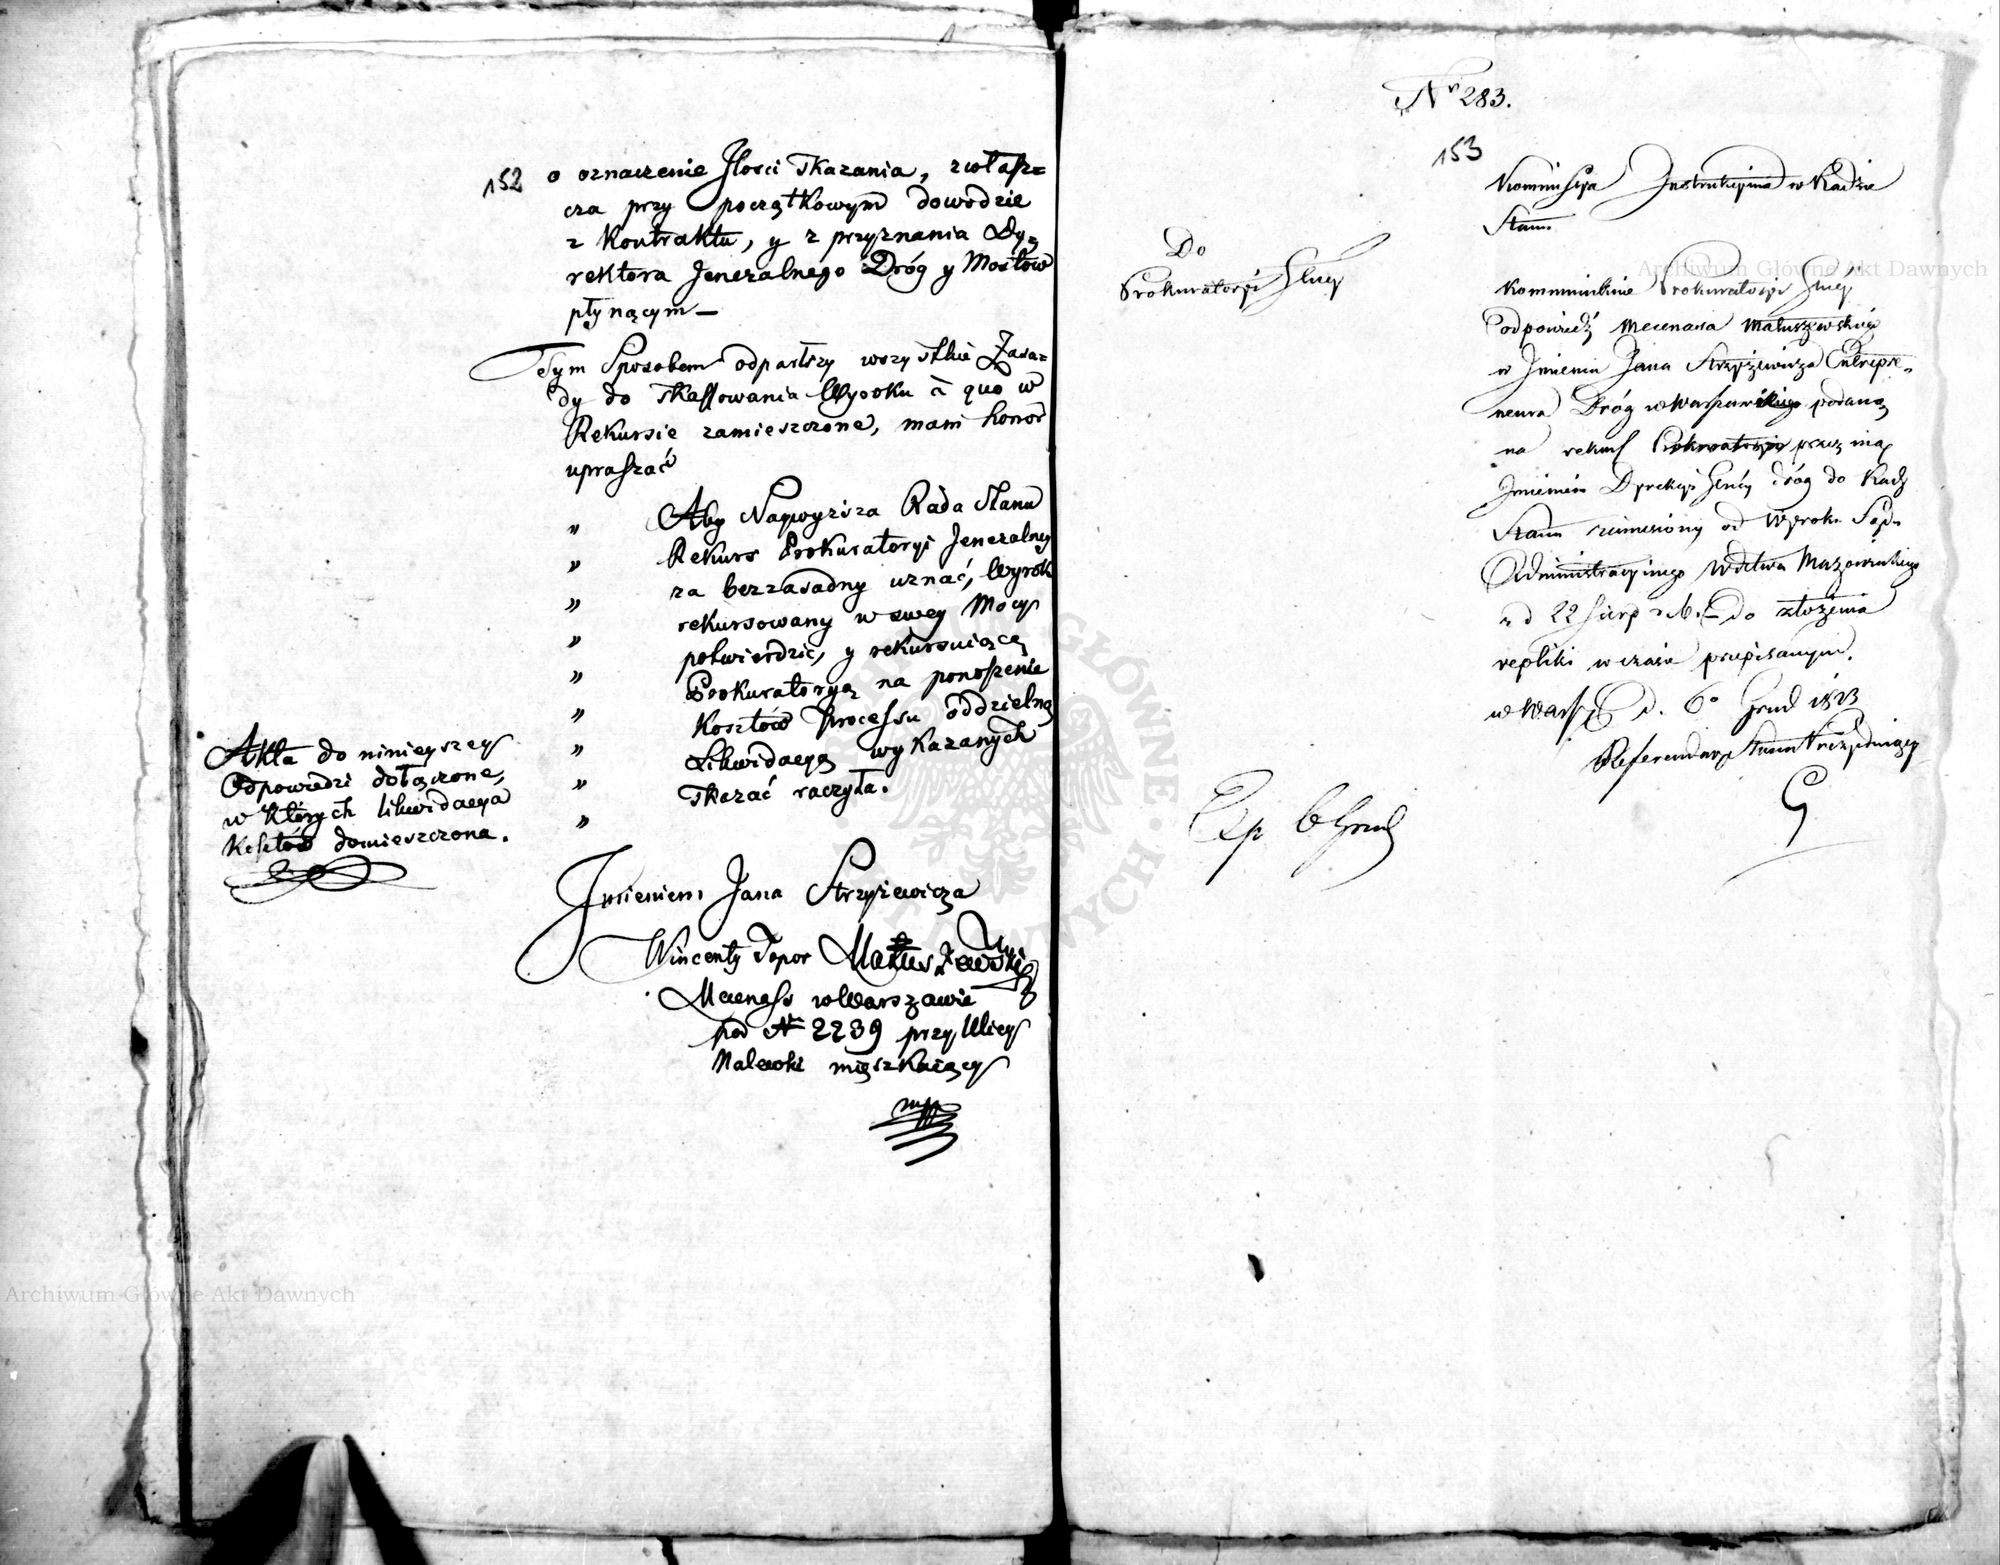 152
o oznaczenie Ilosci skazania, zwłasz=
cza przy początkowym dowodzie
z Kontraktu, y z przyznania Dy=
rektora Jeneralnego Dróg y Mostow
płynącym —
Tym Sposobem odpartszy wszystkie Zasa=
dy do skassowania Wyroku à quo w
Rekursie zamieszczone, mam honor
upraszać
" Aby Naywyższa Rada Stanu
" Rekurs Prokuratoryi Jeneralney
" za bezzasadny uznać, Wyrok
" rekursowany w swey Mocy
" potwierdzić, y rekursuiącą
" Prokuratoryą na ponoszenie
" Kosztów Processu oddzielną
" Likwidacyą wykazanych
" skazać raczyła.
Akta do ninieyszey
Odpowiedzi dołączone,
w których likwidacya
Kosztów domieszczona.
Imieniem Jana Strzyżewicza
Wincenty Topor Matuszewski
Mecenass w Warszawie
pod Nr 2239 przy Ulicy
Nalewki mieszkaiący
mpp
Nr 283.
153
Kommissya Instrukcyina w Radzie
Stanu
Do
Prokuratoryi Głney
Kommunikuie Prokuratoryi Głney
odpowiedź Mecenasa Matuszewskiego
w Imieniu Jana Strzyżewicza Entrepre-
neura Dróg w Warszawskiego podaną
na rekurs Prokuratoryi przez nią
Imieniem Dyrekcyi Gnćy dróg do Rady
Stanu zaniesiony od Wyroku Sądu
Administracyinego Wdztwa Mazowieckiego
z d 22 Sierp r. b. do złożenia
repliki w czasie przepisanym.
w Warsz d. 6o Grud 1823
Referendarz Stanu Prezyduiący
G
Exp 6 Grud
Archiwum Główne Akt Dawnych
Archiwum Główne Akt Dawnych